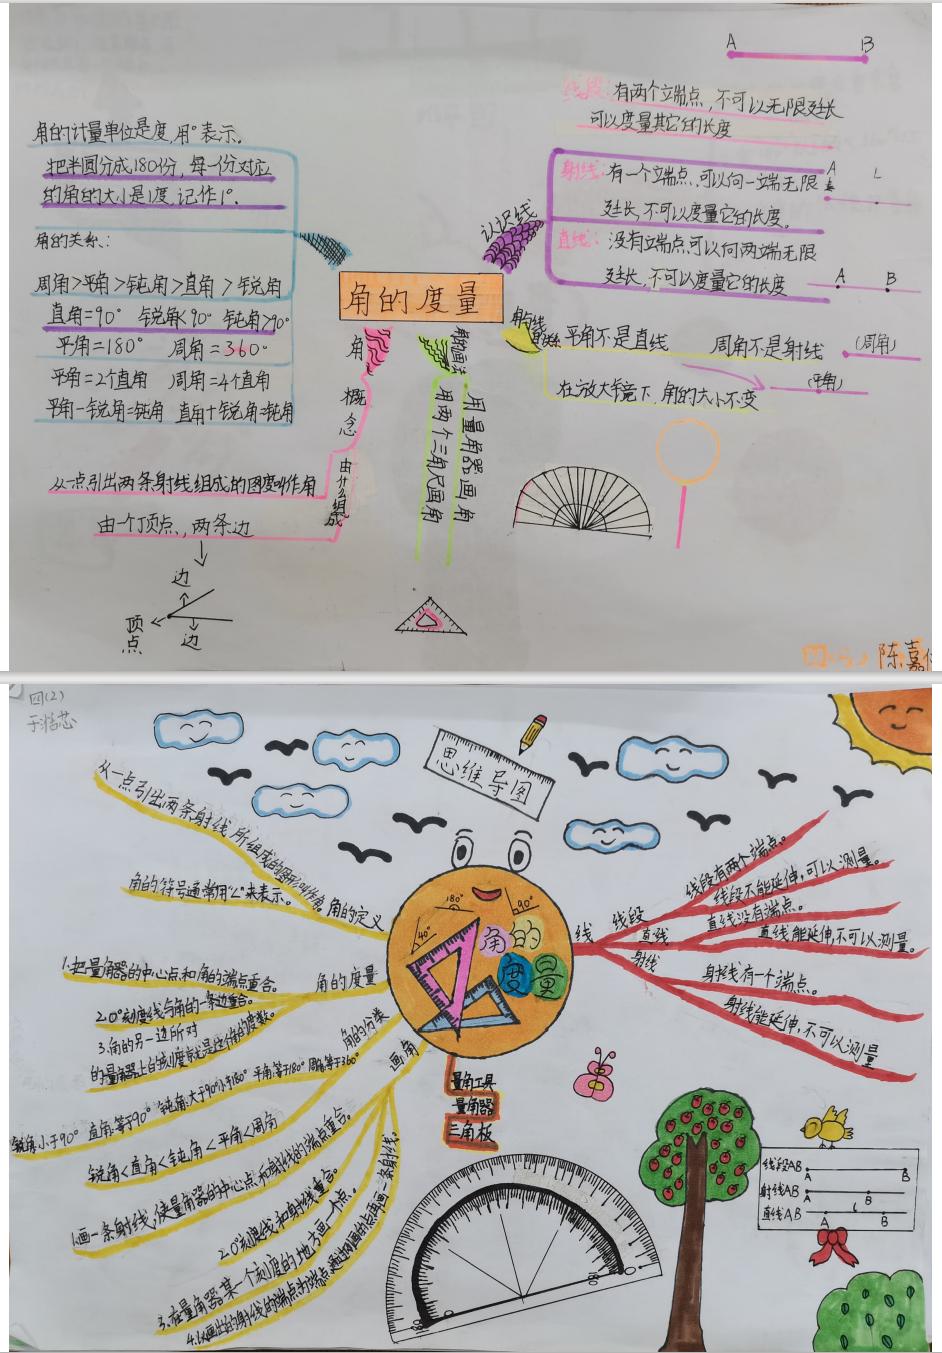 A B
线段:有两个端点,不可以无限延长
可以度量其它的长度
角的计量单位是度,用°表示.
把半圆分成180份,每一份对应
的角的大小是1度,记作1°.
角的关系:
周角>平角>钝角>直角>锐角
直角=90° 锐角<90° 钝角>90°
平角=180° 周角=360°
平角=2个直角 周角=4个直角
平角-锐角=钝角 直角+锐角=钝角
认识线
射线:有一个端点,可以向一端无限
延长,不可以度量它的长度.
A
直线:没有端点可以向两端无限
延长,不可以度量它的长度
A B
角的度量
平角不是直线 周角不是射线
(周角)
(平角)
在放大镜下,角的大小不变
角的画法
用量角器画角
用两个三角尺画角
角
概
念
由什么组成
从一点引出两条射线组成的图度叫作角
由一个顶点,两条边
边
顶点
边
陈嘉
四(2)
思维导图
从一点引出两条射线所组成的图形叫作角。
角的定义
角的符号通常用“∠”来表示。
角的度量
1.把量角器的中心点和角的端点重合。
2.0°刻度线与角的一条边重合。
3.角的另一边所对
的量角器上的刻度就是这个角的度数。
角的分类
锐角小于90° 直角等于90° 钝角大于90°小于180° 平角等于180° 周角等于360°
锐角<直角<钝角<平角<周角
画角
1.画一条射线,使量器的中心点和射线的端点重合。
2.0°刻度线和射线重合。
3.在量角器某一个刻度的地方画一个点。
180°
90°
40°
角的
度量
量角工具
量角器
三角板
线
线段
线段有两个端点。
线段不能延伸,可以测量。
直线
直线没有端点。
直线能延伸,不可以测量。
射线
射线有一个端点。
射线能延伸,不可以测量
线段AB A B
射线AB A B
直线AB A B
180 0
180 0